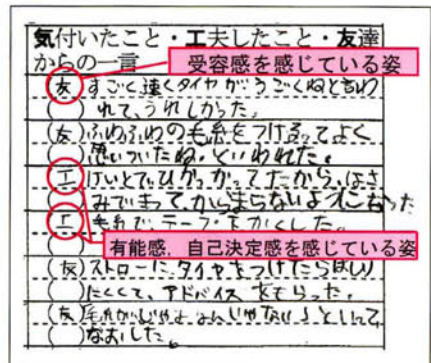 気付いたこと・工夫したこと・友達
からの一言
受容感を感じている姿
(友)すごく速くタイヤがうごくねと言わ
( )れて、うれしかった。
(友)ふわふわの毛糸をつけるってよく
( )思いついたね。といわれた。
(工)けいとでひっかかってたから、はさ
( )みできって、からまらないように
(工)毛糸で、テープをかくした。
( )
有能感,自己決定感を感じている姿
(友)ストローに、タイヤをつけたらはしり
( )にくくて、アドバイスをもらった。
(友)
( )なおした。